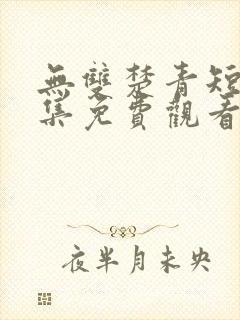 無雙楚青短
集免費觀看
夜半月未央